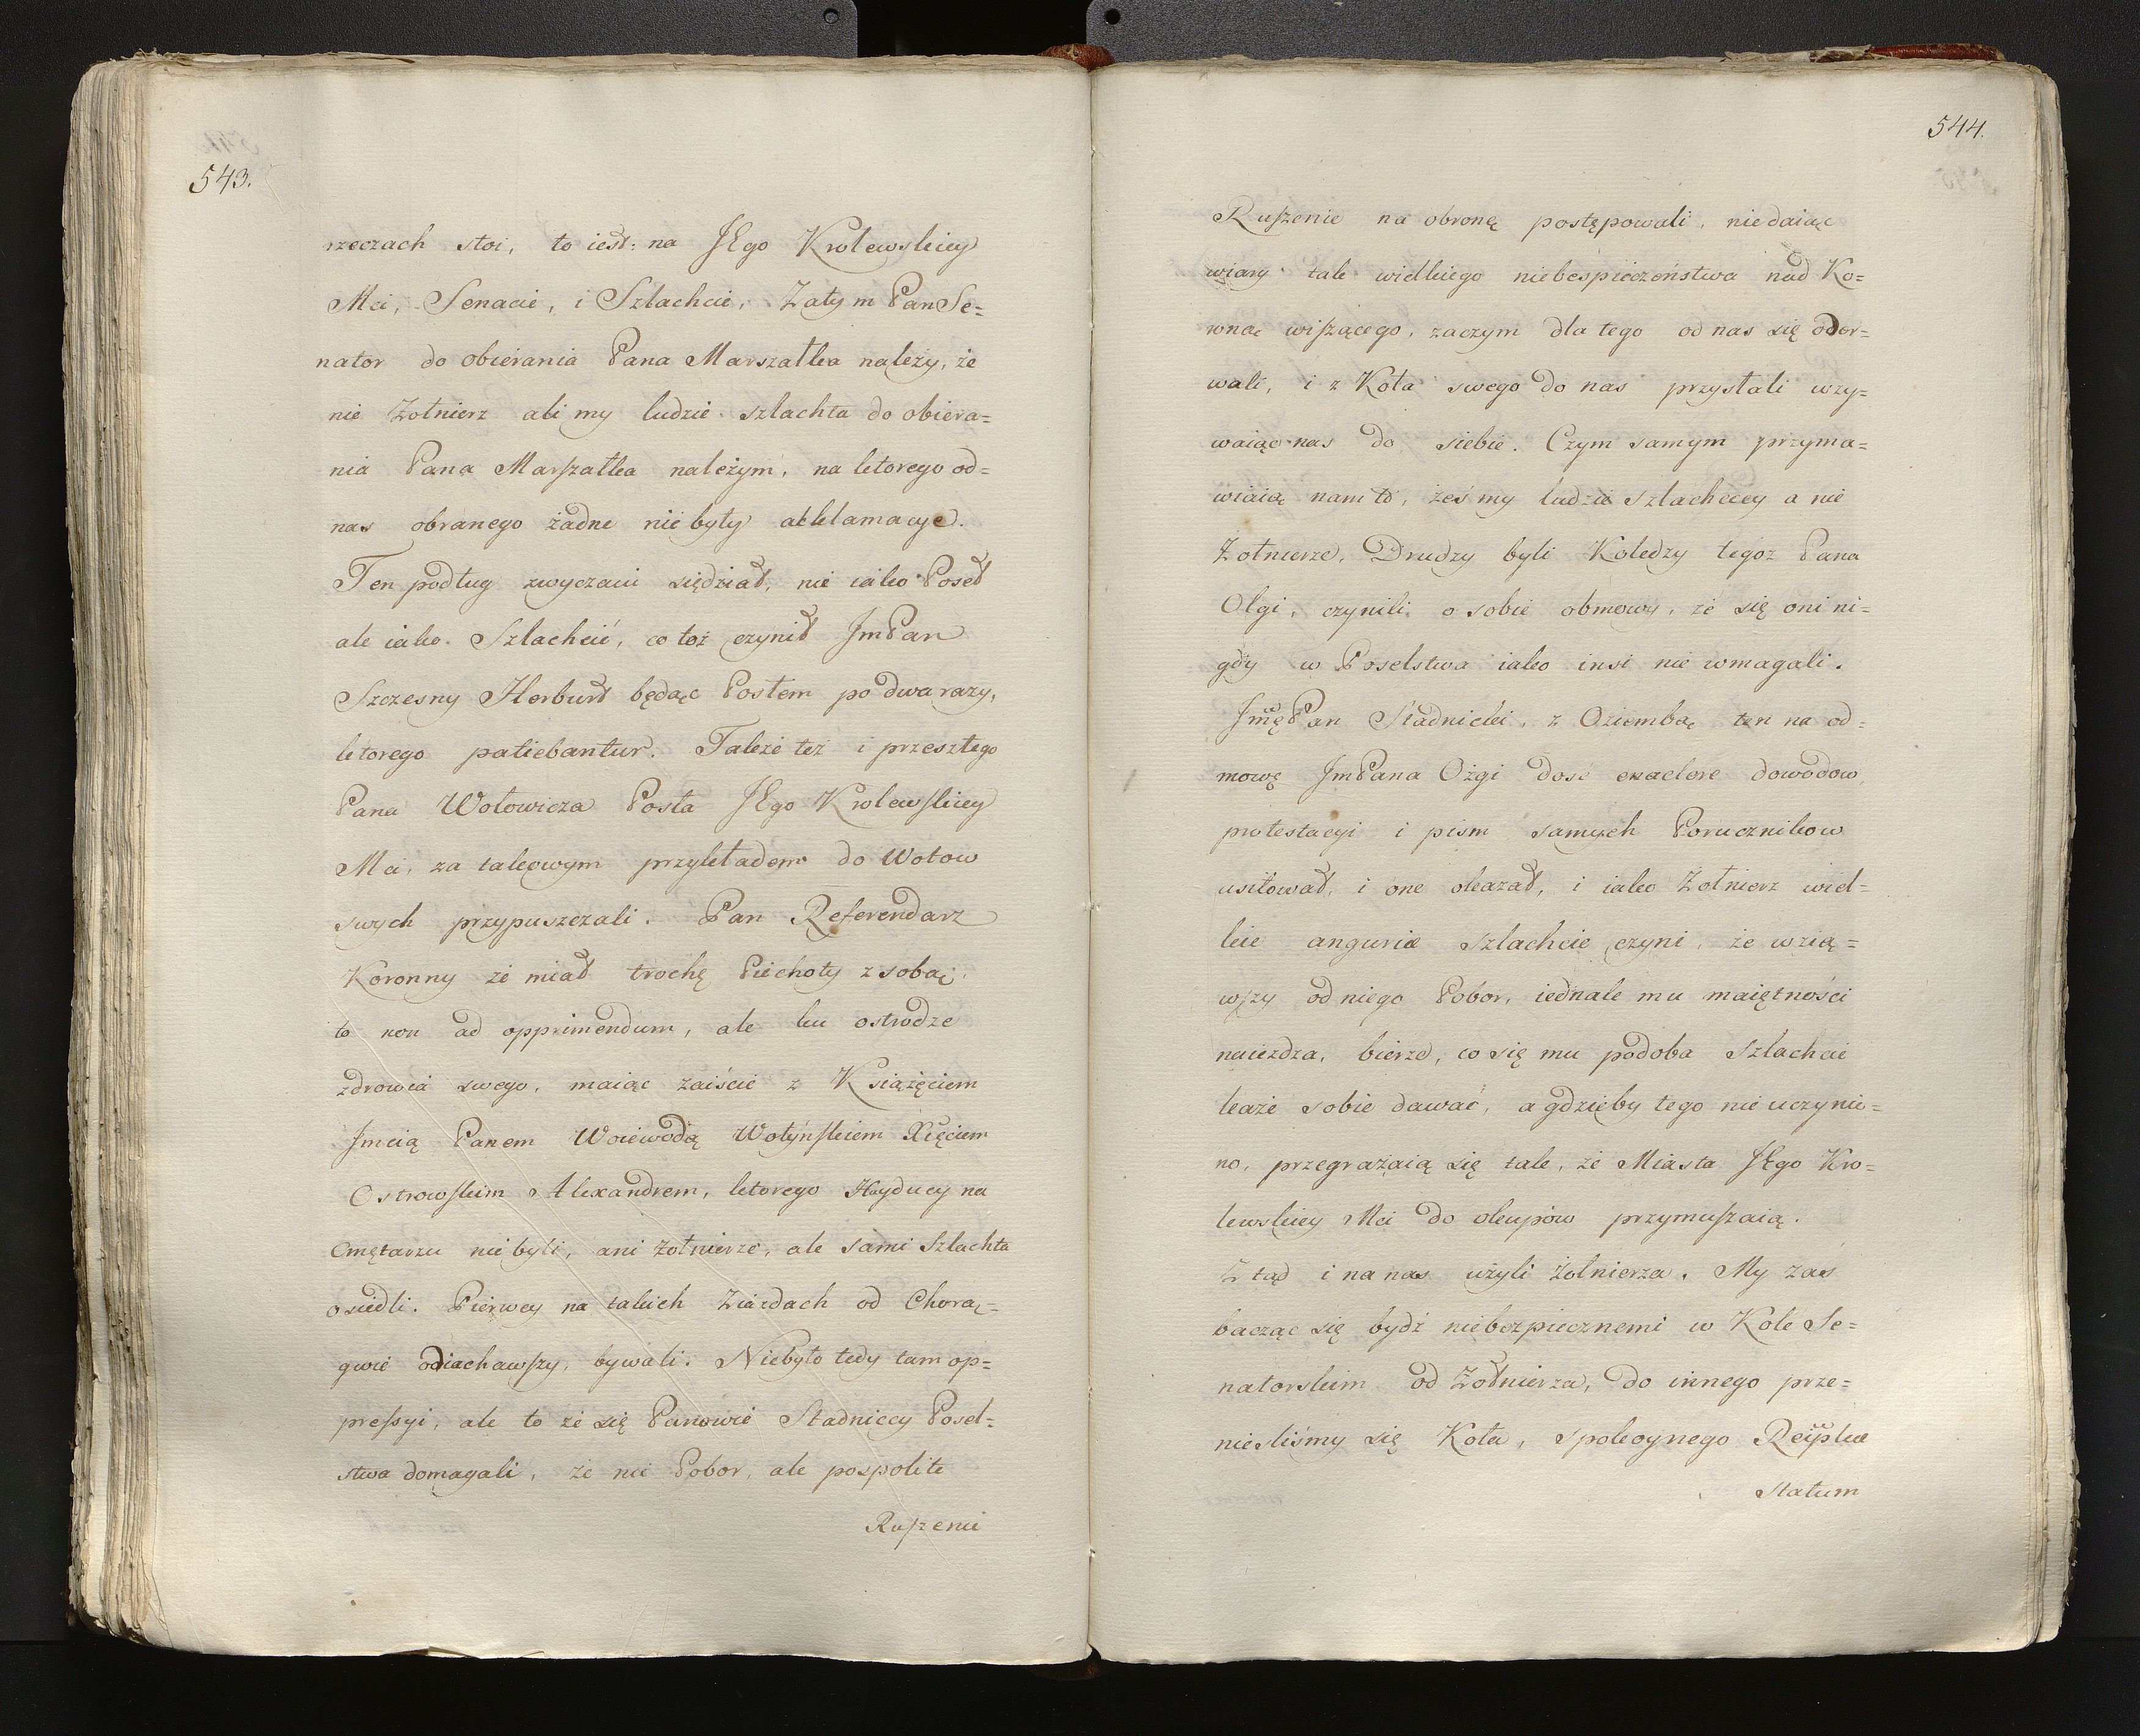 543.
rzeczach stoi, to iest: na JKgo Krolewskiey
Mci, Senacie, i Szlachcie, Zatym Pan Se=
nator do obierania Pana Marszałka należy, że
nie Żołnierz ali my ludzie szlachta do obiera=
nia Pana Marszałka należym, na ktorego od=
nas obranego żadne nie były akklamacye.
Ten podług zwyczaiu siędział, nie iako Poseł
ale iako Szlachcić, co toż czynił JmPan
Szczesny Herburt będąc Posłem po dwa razy,
ktorego patiebantur. Także też i przeszłego
Pana Wołowicza Posła JKgo Krolewskiey
Mci, za takowym przykładem do Wotow
swych przypuszczali. Pan Referendarz
Koronny że miał trochę Piechoty z sobą,
to non ad opprimendum, ale ku ostrodze
zdrowia swego, maiąc zaiście z Książęciem
Jmcią Panem Woiewodą Wołyńskiem Xięciem
Ostrowskim Alexandrem, ktorego Hayducy na
Cmętarzu nie byli, ani żołnierze, ale sami Szlachta
osiedli. Pierwey na takich Ziazdach od Chorą=
gwie odiachawszy, bywali. Niebyło tedy tam op=
pressyi, ale to że się Panowie Stadniccy Posel=
stwa domagali, że nie Pobor, ale pospolite
Ruszenie
544.
Ruszenie na obronę postępowali, niedaiąc
wiary tak wielkiego niebespieczeństwa nad Ko=
roną wiszącego, zaczym dla tego od nas się oder=
wali, i z Koła swego do nas przysłali wzy=
waiąc nas do siebie. Czym samym przyma=
wiaią nam to, żeś my ludzie szlacheccy a nie
Żołnierze. Drudzy byli Koledzy tegoz Pana
Olgi, czynili o sobie obmowy, że się oni ni=
gdy w Poselstwa iako insi nie wmagali.
Jmę Pan Stadnicki, z Oziembą ten na od=
mowę JmPana Ożgi dość exaclore dowodow,
protestacyi i pism samych Porucznikow
usiłował, i one okazał, i iako Żołnierz wiel=
kie anguriæ szlachcie czyni, że wzią=
wszy od niego Pobor, iednak mu maiętności
naiezdza, bierze, co się mu podoba Szlachcie
każe sobie dawać, a gdzieby tego nie uczynio=
no, przegrażaią się tak, że Miasta JKgo Kro=
lewskiey Mci do okupów przymuszaią.
Ztąd i na nas użyli żołnierza. My zas
bacząc się bydź niebezpiecznemi w Kole Se=
natorskim od Żołnierza, do innego prze=
nieśliśmy się Koła, spokoynego Reiplcæ
Statum